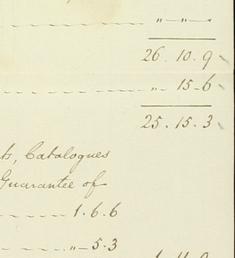 " — " —
26 . 10 . 9
" 15 - 6
25 . 15 . 3
Catalogues
Guarantee of
1 . 6 . 6
" — 5 . 3